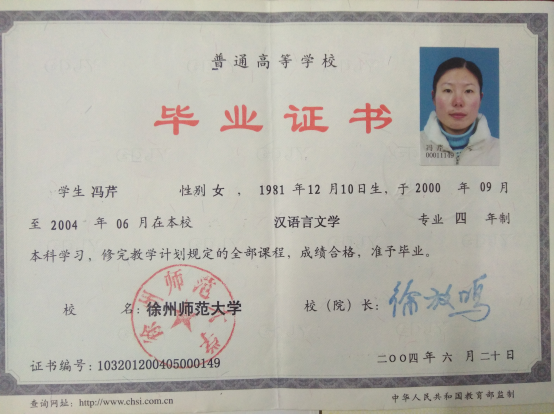 普通高等学校
毕业证书
冯芹
学生 冯芹 性别 女 ，1981 年 12 月 10 日生，于 2000 年 09 月
至 2004 年 06 月在本校 汉语言文学 专业 四 年制
本科学习，修完教学计划规定的全部课程，成绩合格，准予毕业。
校 名：徐州师范大学 校（院）长：徐放鸣
徐州师范大学
证书编号：103201200405000149 二〇〇四年 六 月 二十 日
查询网址：http://www.chsi.com.cn 中华人民共和国教育部监制